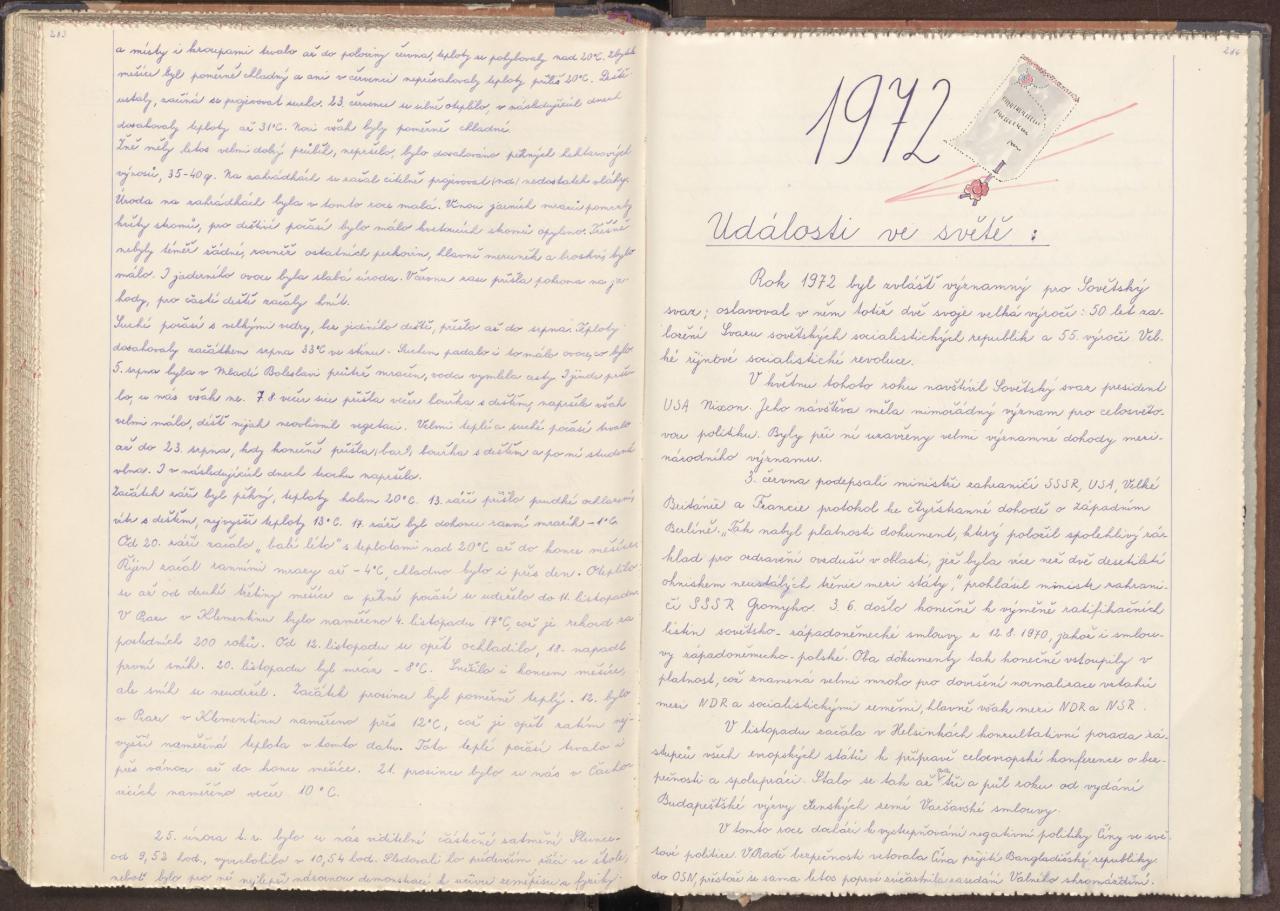 283
a místy i kroupami trvalo až do poloviny června, teploty se pohybovaly nad 20°C. Zbytek
měsíce byl poměrně chladný a ani v červenci nepřesahovaly teploty příliš 20°C. Deště
ustaly, začíná se projevovat sucho. 23. července se silně oteplilo, v následujících dnech
dosahovaly teploty až 31°C. Noci však byly poměrně chladné.
Žně měly letos velmi dobrý průběh, nepršelo, bylo dosahováno pěkných hektarových
výnosů, 35-40 q. Na zahrádkách se začal citelně projevovat nedostatek vláhy.
Úroda na zahrádkách byla v tomto roce malá. Vinou jarních mrazů pomrzly
květy stromů, pro deštivé počasí bylo málo kvetoucích stromů opyleno. Třešně
nebyly téměř žádné, rovněž ostatních peckovin, hlavně meruněk a broskví, bylo
málo. I jaderného ovoce byla slabá úroda. V červnu zase přišla pohroma na ja-
hody, pro časté deště začaly hnít.
Suché počasí s velkými vedry, bez jediného deště, přišlo až do srpna. Teploty
dosahovaly začátkem srpna 33°C ve stínu. Suchem padalo i to málo ovoce, co bylo.
5. srpna byla v Mladé Boleslavi průtrž mračen, voda vymlela cesty. I jinde prše-
lo, u nás však ne. 7.8. večer sice přišla večer bouřka s deštěm, napršelo však
velmi málo, déšť nijak neovlivnil vegetaci. Velmi teplé a suché počasí trvalo
až do 23. srpna, kdy konečně přišla bouřka s deštěm a po ní studená
vlna. I v následujících dnech trochu napršelo.
Začátek září byl pěkný, teploty kolem 20°C. 13. září přišlo prudké ochlazení,
vítr s deštěm, nejvyšší teploty 13°C. 17. září byl dokonce ranní mrazík -1°C.
Od 20. září začalo „babí léto" s teplotami nad 20°C až do konce měsíce.
Říjen začal ranními mrazy až -4°C, chladno bylo i přes den. Oteplilo
se až od druhé třetiny měsíce a pěkné počasí se udrželo do 11. listopadu.
V Praze v Klementinu bylo naměřeno 4. listopadu 17°C, což je rekord za
posledních 200 roků. Od 12. listopadu se opět ochladilo, 18. napadl
první sníh. 20. listopadu byl mráz -8°C. Sněžilo i koncem měsíce,
ale sníh se neudržel. Začátek prosince byl poměrně teplý. 12. bylo
v Praze v Klementinu naměřeno přes 12°C, což je opět zatím nej-
vyšší naměřená teplota v tomto datu. Toto teplé počasí trvalo i
přes vánoce až do konce měsíce. 21. prosince bylo u nás v Čacho-
vicích naměřeno večer 10°C.
25. února t.r. bylo u nás viditelné částečné zatmění Slunce
od 9,52 hod., vyvrcholilo v 10,54 hod. Sledovali to především žáci ve škole,
neboť bylo pro ně nejlepší názornou demonstrací k učivu zeměpisu a fyziky.
284
1972
Události ve světě :
Rok 1972 byl zvlášť významný pro Sovětský
svaz; oslavoval v něm totiž dvě svoje velká výročí: 50 let za-
ložení Svazu sovětských socialistických republik a 55. výročí Vel-
ké říjnové socialistické revoluce.
V květnu tohoto roku navštívil Sovětský svaz president
USA Nixon. Jeho návštěva měla mimořádný význam pro celosvěto-
vou politiku. Byly při ní uzavřeny velmi významné dohody mezi-
národního významu.
3. června podepsali ministři zahraničí SSSR, USA, Velké
Británie a Francie protokol ke čtyřstranné dohodě o západním
Berlíně. „Tak nabyl platnosti dokument, který položil spolehlivý zá-
klad pro ozdravění ovzduší v oblasti, jež byla více než dvě desetiletí
ohniskem neustálých třenic mezi státy," prohlásil ministr zahrani-
čí SSSR Gromyko. 3.6. došlo konečně k výměně ratifikačních
listin sovětsko-západoněmecké smlouvy z 12.8.1970, jakož i smlou-
vy západoněmecko-polské. Oba dokumenty tak konečně vstoupily v
platnost, což znamená velmi mnoho pro dovršení normalizace vztahů
mezi NDR a socialistickými zeměmi, hlavně však mezi NDR a NSR.
V listopadu začala v Helsinkách konzultativní porada zá-
stupců všech evropských států k přípravě celoevropské konference o bez-
pečnosti a spolupráci. Stalo se tak až tři a půl roku od vydání
Budapešťské výzvy členských zemí Varšavské smlouvy.
V tomto roce dochází k vystupňování negativní politiky Číny ve svě-
tové politice. V Radě bezpečnosti vetovala Čína přijetí Bangladéšské republiky
do OSN, přestože se sama letos poprvé zúčastnila zasedání Valného shromáždění.